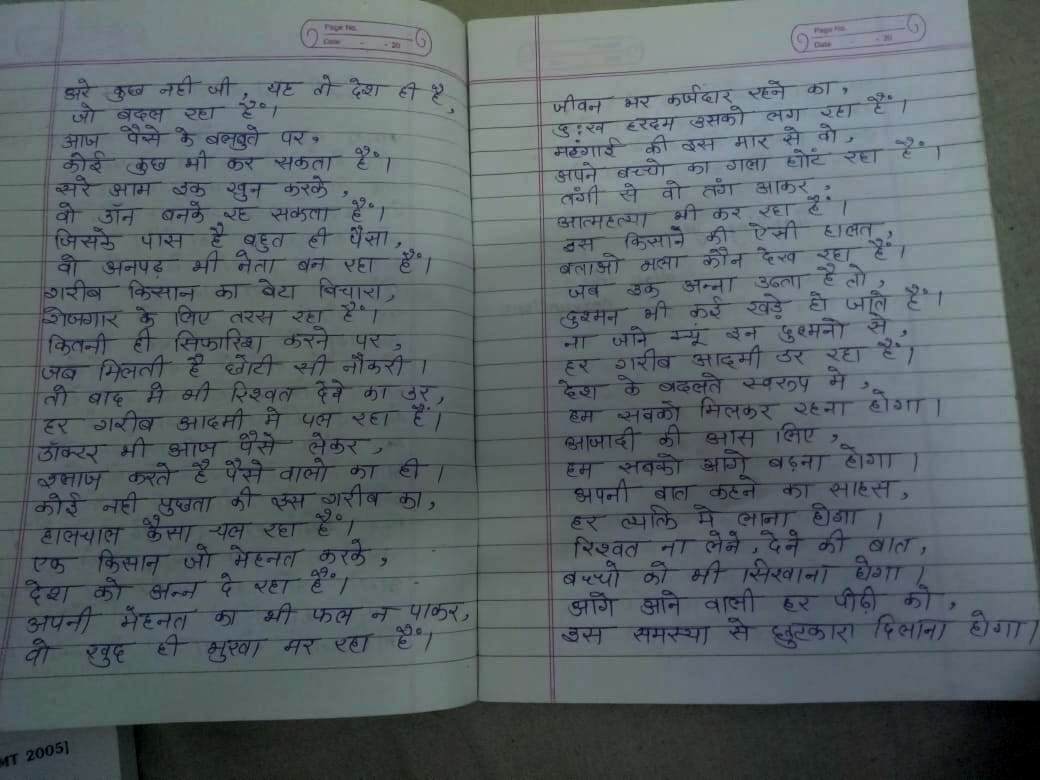 Page No.
Date - - 20
अरे कुछ नही जी, यह तो देश ही है,
जो बदल रहा है।
आज पैसे के बलबुते पर,
कोई कुछ भी कर सकता है।
सरे आम इक खुन करके,
वो डॉन बनके रह सकता है।
जिसके पास है बहुत ही पैसा,
वो अनपढ़ भी नेता बन रहा है।
गरीब किसान का बेटा बिचारा,
रोजगार के लिए तरस रहा है।
कितनी ही सिफारिश करने पर,
जब मिलती है छोटी सी नौकरी।
तो बाद मे भी रिश्वत देने का डर,
हर गरीब आदमी मे पल रहा है।
डॉक्टर भी आज पैसे लेकर,
इलाज करते है पैसे वालो का ही।
कोई नही पुछता की इस गरीब का,
हालचाल कैसा चल रहा है।
एक किसान जो मेहनत करके,
देश को अन्न दे रहा है।
अपनी मेहनत का भी फल न पाकर,
वो खुद ही भुखा मर रहा है।
Page No.
Date - - 20
जीवन भर कर्जदार रहने का,
दुःख हरदम उसको लग रहा है।
महंगाई की इस मार से वो,
अपने बच्चो का गला घोंट रहा है।
तंगी से वो तंग आकर,
आत्महत्या भी कर रहा है।
उस किसान की ऐसी हालत,
बताओ भला कौन देख रहा है।
जब इक अन्ना उठता है तो,
दुश्मन भी कई खड़े हो जाते है।
ना जाने क्यूं इन दुश्मनो से,
हर गरीब आदमी डर रहा है।
देश के बदलते स्वरूप मे,
हम सबको मिलकर रहना होगा।
आजादी की आस लिए,
हम सबको आगे बढ़ना होगा।
अपनी बात कहने का साहस,
हर व्यक्ति मे लाना होगा।
रिश्वत ना लेने, देने की बात,
बच्चो को भी सिखाना होगा।
आगे आने वाली हर पीढ़ी को,
इस समस्या से छुटकारा दिलाना होगा।
MT 2005]